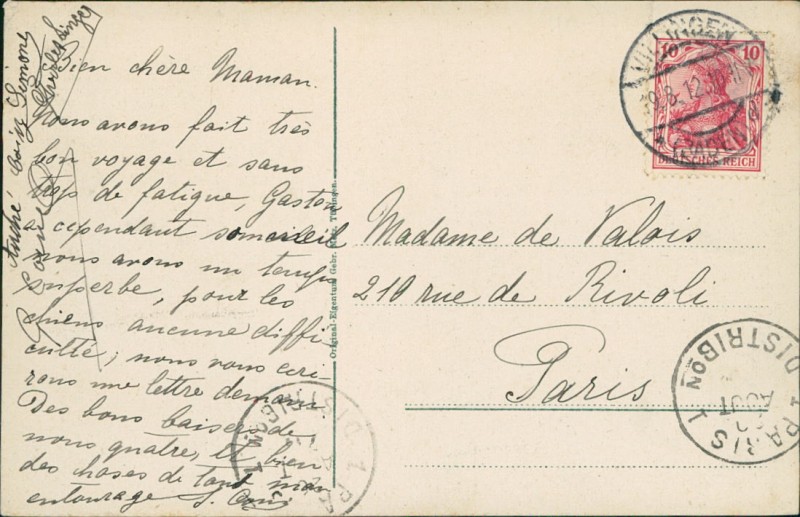 Bien chère Maman.
Nous avons fait très
bon voyage et sans
trop de fatigue, Gaston
a cependant sommeil
nous avons un temps
superbe, pour les
chiens aucune diffi
culté; nous vous écri
rons une lettre demain.
Des bons baisers de
nous quatre, et bien
des choses de tout mon
entourage S.
André Simone
Original-Eigentum Gebr. Metz, Tübingen.
VILLINGEN
19.8.12.
(BADEN)
10 10
DEUTSCHES REICH
Madame de Valois
210 rue de Rivoli
Paris
PARIS 1
DISTRIBON
AOUT
PARIS 1
DISTRIBON